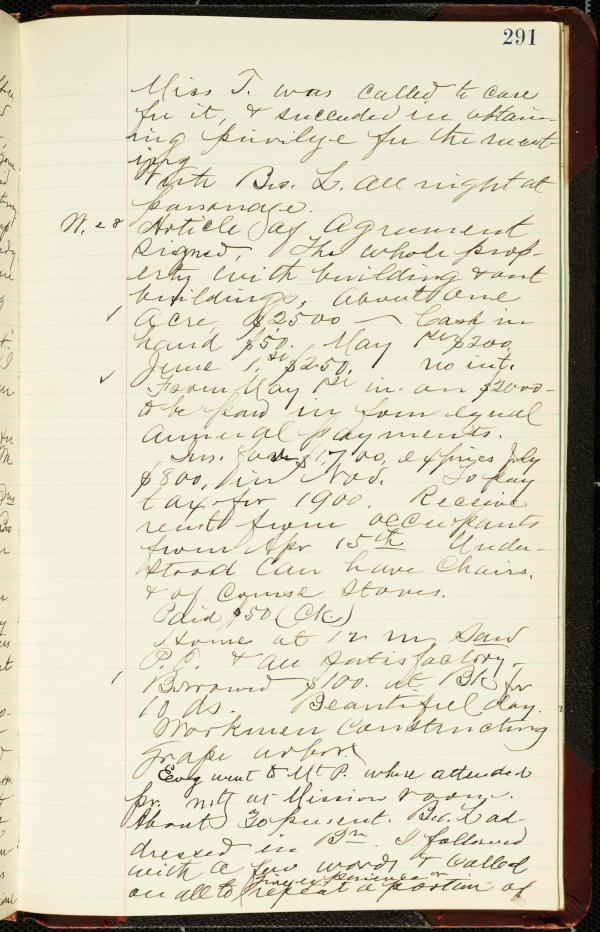 291
Miss T. was called to care
for it, & succeeded in obtain-
ing privilge for the meet
ing
With Bro. L. all night at
parsonage.
W. 28 Article of Agreement
signed, The whole prop-
erty with building & out
buildings, About One
Acre, $2500 — Cash in
hand $50. May 1st $200,
June 1st, $250, no int.
From May 1st in. on $2000-
to be paid in four equal
annual payments.
Ins. $1700, expires July
$800, in Nov. To pay
tax for 1900. Receive
rent from occupants
from Apr 15th Under-
stood can have Chairs,
& of course stoves.
Paid $50 (Ck)
Home at 12 m, Saw
P.C. & all satisfactory,
Borrowed $100. at Bk for
10 ds. Beautiful day.
Workmen constructing
grape arbor.
Evg went to Mt P. where attended
pr. mtg at Mission room.
About 30 present. Bro. L ad-
dressed in Bn. I followed
with a few words & called
on all to give experience or repeat a portion of